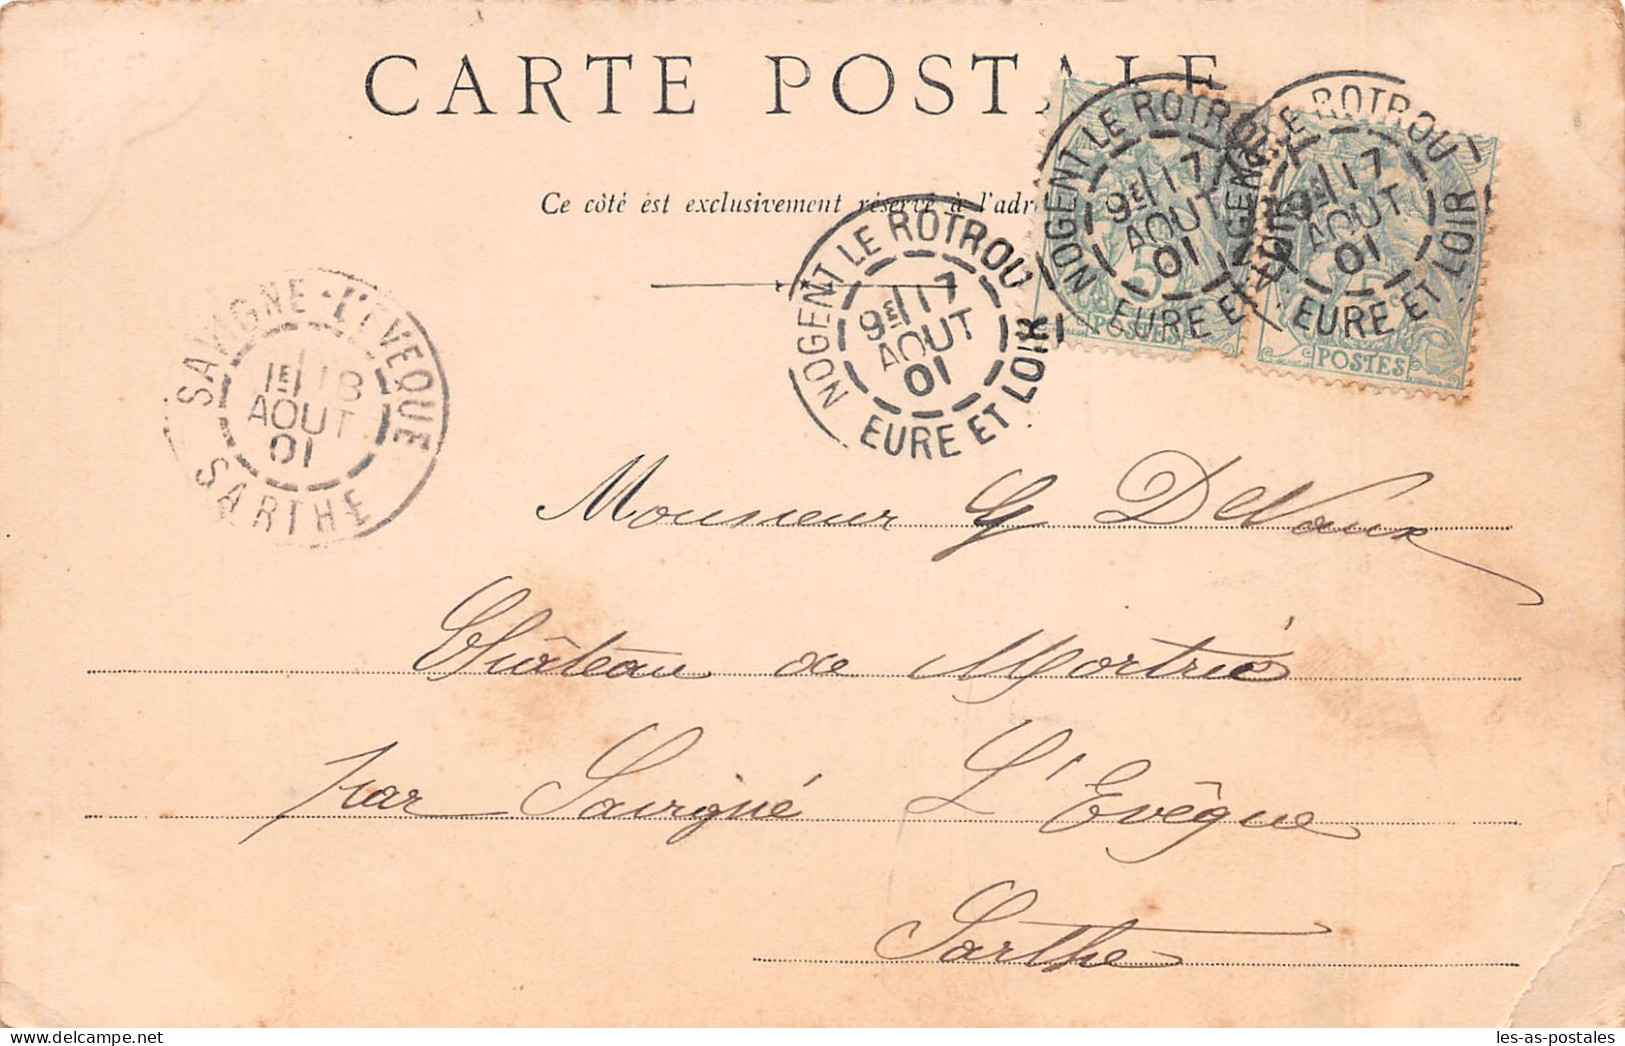 CARTE POSTALE
Ce côté est exclusivement réservé à l'adr
NOGENT LE ROTROU
9E 17
AOUT
01
EURE ET LOIR
NOGENT LE ROTROU
9E 17
AOUT
01
EURE ET LOIR
NOGENT LE ROTROU
9E 17
AOUT
01
EURE ET LOIR
5
POSTES
5c
POSTES
SAVIGNE-L'EVEQUE
1E 18
AOUT
01
SARTHE
Monsieur G DeVaux
Château de Mortrié
par Savigné L'Evêque
Sarthe
les-as-postales